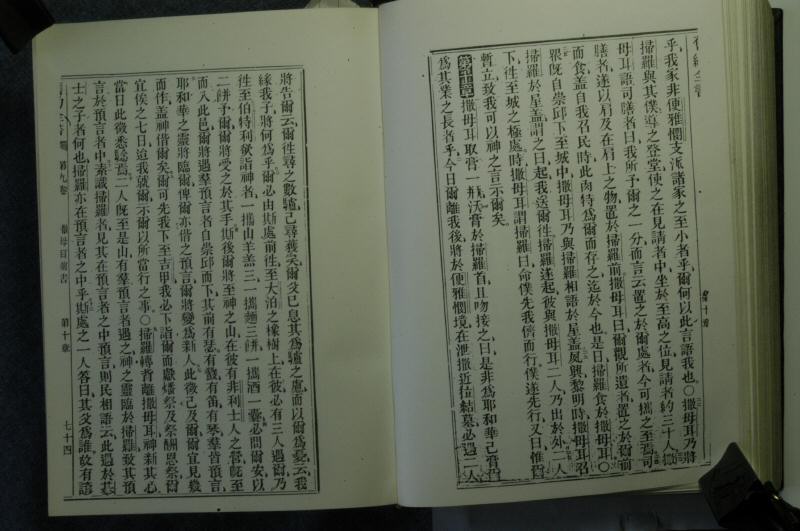 舊約全書
乎我家非便雅憫支派諸家之至小者乎爾何以此言語我也○撒母耳乃將
掃羅與其僕導之登堂使之在見請者中坐於至高之位見請者約三十人撒
母耳語司膳者曰我所予爾之一分而言云置之於爾處者今可攜之至焉司
膳者遂以肩及在肩上之物置於掃羅前撒母耳曰爾觀所遺者置之於爾前
而食蓋自我召民時此肉特爲爾而存之迄於今也是日掃羅食於撒母耳○
眾既自崇邱下至城中撒母耳乃與掃羅相語於屋蓋夙興黎明時撒母耳召
掃羅於屋蓋謂之曰起我送爾往掃羅遂起彼與撒母耳二人乃出於外二人
下往至城之極處時撒母耳謂掃羅曰命僕先我儕而行僕遂先行又曰惟爾
暫立致我可以神之言示爾矣
第十章 撒母耳取膏一瓶沃膏於掃羅首且吻接之曰是非爲耶和華已膏爾
爲其業之長者乎今日爾離我後將於便雅憫境在泄撒近拉結墓必遇二人
將告爾云爾往尋之數驢已尋獲矣爾父已息其爲驢之慮而以爾爲憂云我
緣我子將何爲乎爾必由斯處前往至大泊之橡樹上在彼必有三人遇爾乃
往至伯特利敬詣神者一攜山羊羔三一攜麵三餅一攜酒一囊必問爾安以
二餅予爾爾將受之於其手斯後爾將至神之山在彼有非利士人之營旣至
而入此邑爾將遇羣預言者自崇邱而下其前有瑟有鼗有笛有琴羣皆預言
耶和華之靈將臨爾俾爾亦偕之預言爾將變爲新人此徵己及爾爾宜見幾
而作蓋神偕爾矣爾可先我下至吉甲我必下詣爾而獻燔祭及祭酬恩祭爾
宜俟之七日迨我就爾示爾以所當行之事○掃羅轉背離撒母耳神新其心
當日此徵悉驗焉二人旣至是山有羣預言者遇之神之靈臨於掃羅致其預
言於預言者中素識掃羅者見其在預言者之中預言則民相語云此遇於其
士之子者何也掃羅亦在預言者之中乎斯處之一人答曰其父爲誰故有語
第九卷 撒母耳前書 第十章 七十四